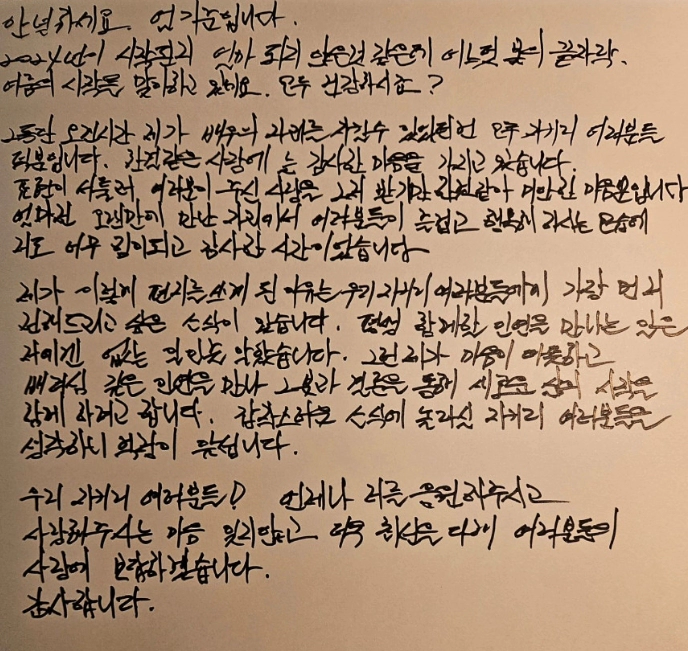 안녕하세요. 엄기준입니다.
2024년이 시작된지 얼마 되지 않은것 같은데 어느덧 봄의 끝자락.
여름의 시작을 맞이하고 있네요. 모두 건강하시죠?
그동안 오랜시간 제가 배우의 자리를 지킬수 있었던건 모두 자기리 여러분들
덕분입니다. 한결같은 사랑에 늘 감사한 마음을 가지고 있습니다.
표현이 서툴러 여러분이 주신 사랑을 그저 받기만 한것같아 미안한 마음뿐입니다
얼마전 오랜만에 만난 자리에서 여러분들이 즐겁고 행복해 하시는 모습에
저도 너무 힘이되고 감사한 시간이었습니다
제가 이렇게 편지를 쓰게 된 이유는 우리 자기리 여러분들에게 가장 먼저
전해드리고 싶은 소식이 있습니다. 평생 함께할 인연을 만나는 일은
저에겐 없는 일인줄 알았습니다. 그런 제가 마음이 따뜻하고
배려심 깊은 인연을 만나 그분과 결혼을 통해 새로운 삶의 시작을
함께 하려고 합니다. 갑작스러운 소식에 놀라실 자기리 여러분들을
생각하니 걱정이 됩니다.
우리 자기리 여러분들! 언제나 저를 응원해주시고
사랑해주시는 마음 잊지않고 더욱 최선을 다해 여러분들의
사랑에 보답하겠습니다.
감사합니다.